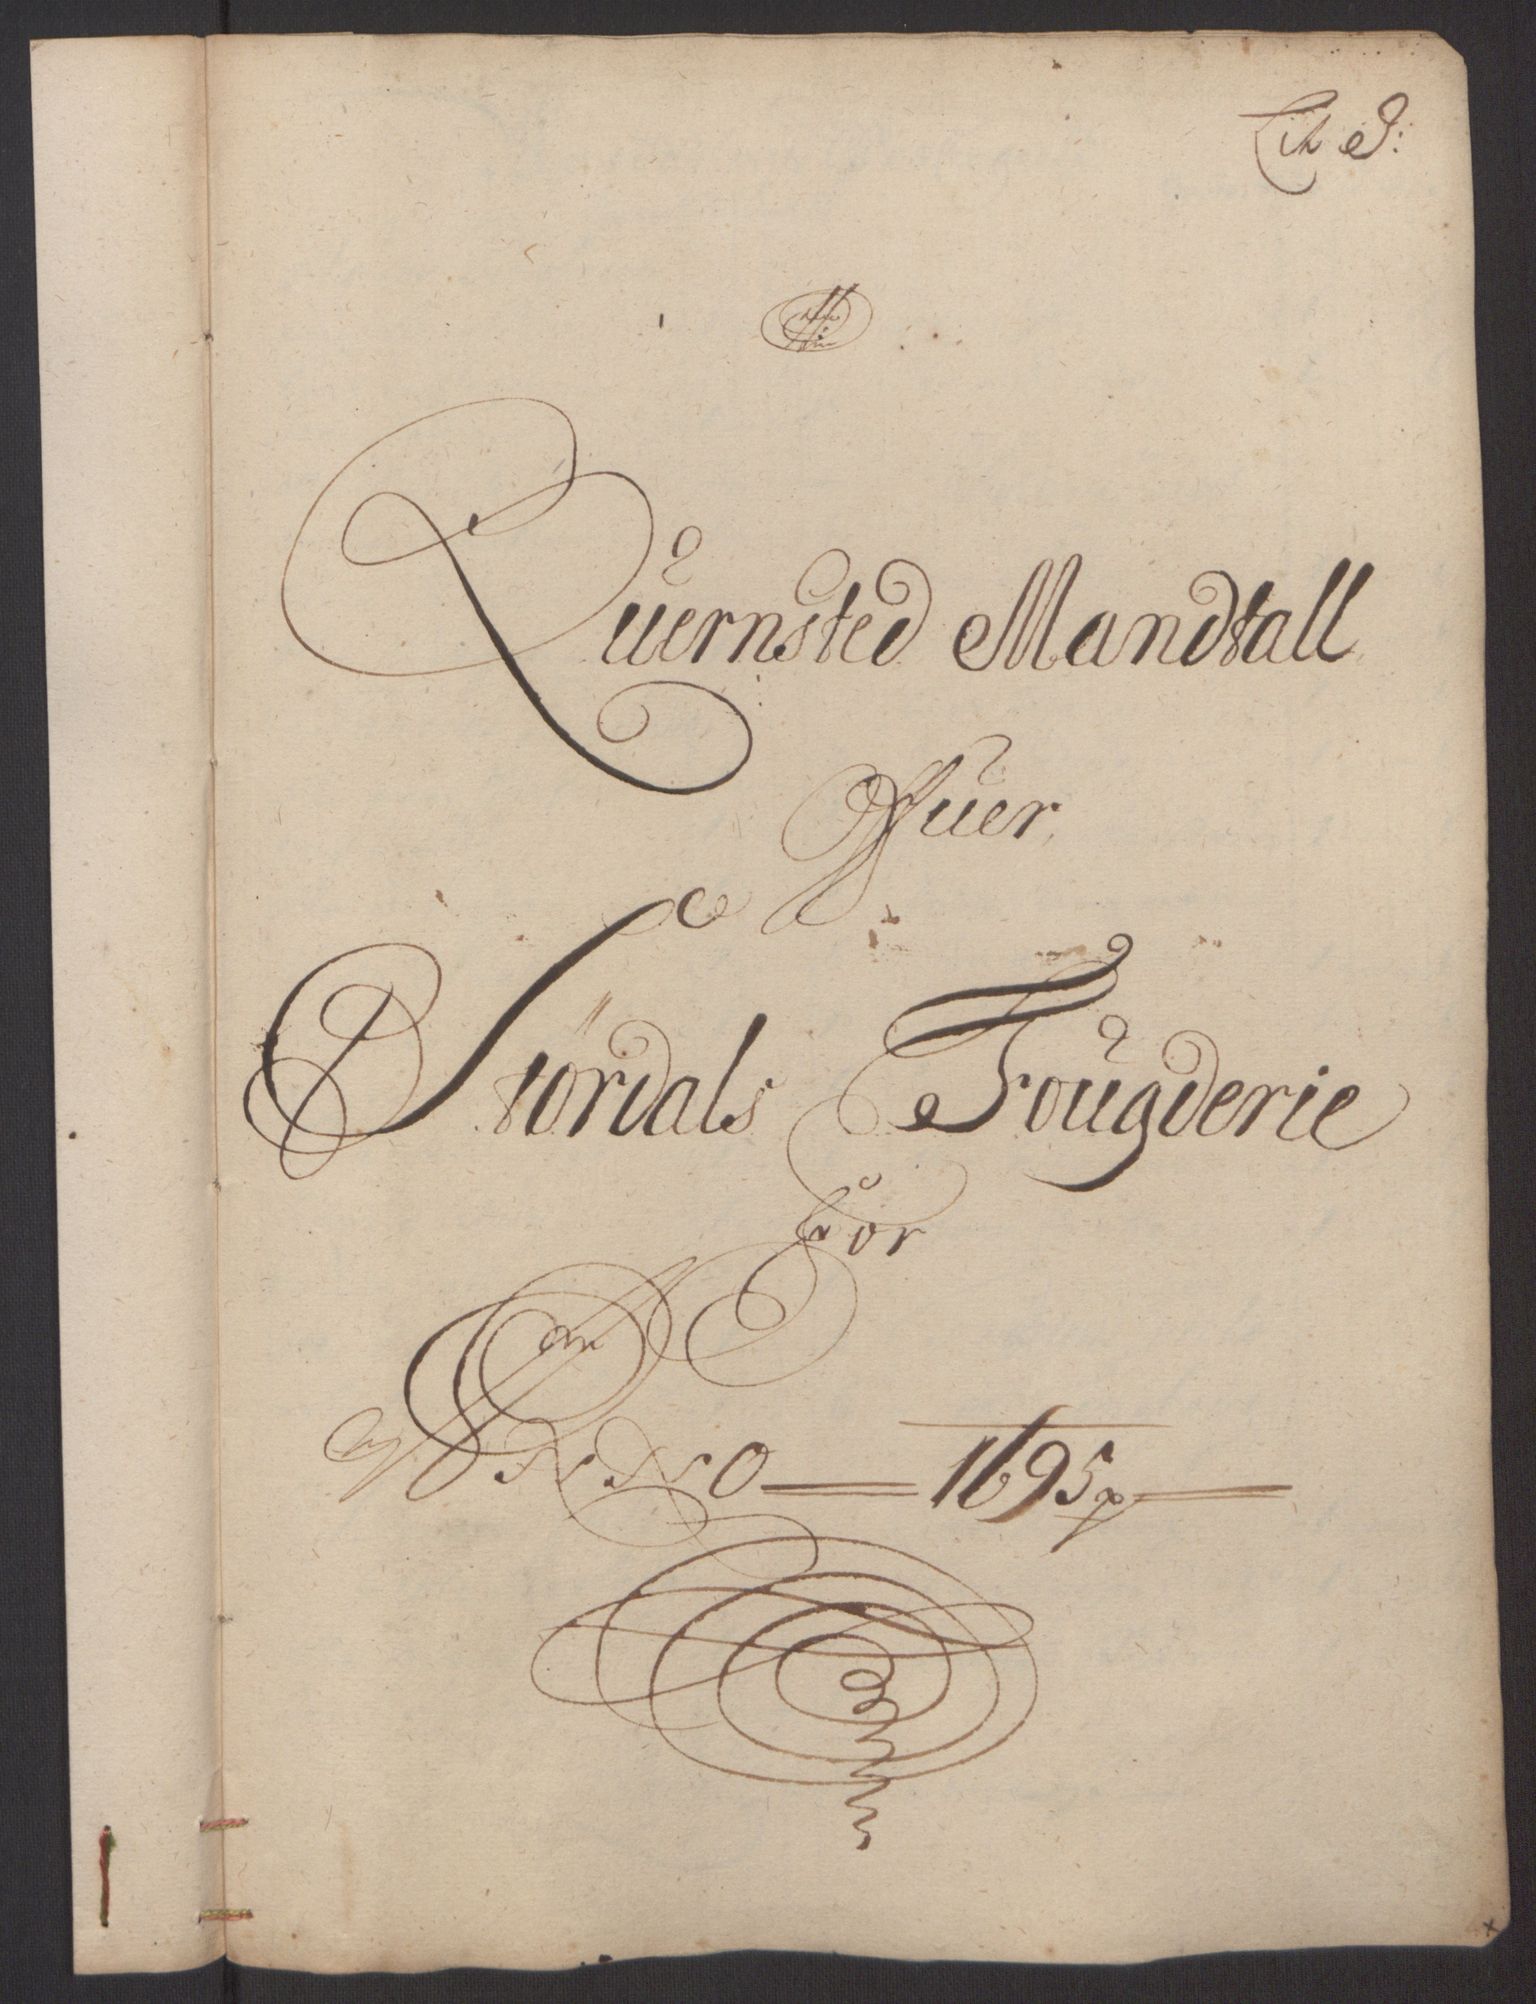 Lit J:
Quernsted Mandtall
Offuer
Størdals Fougderie
For
ANNO 1695